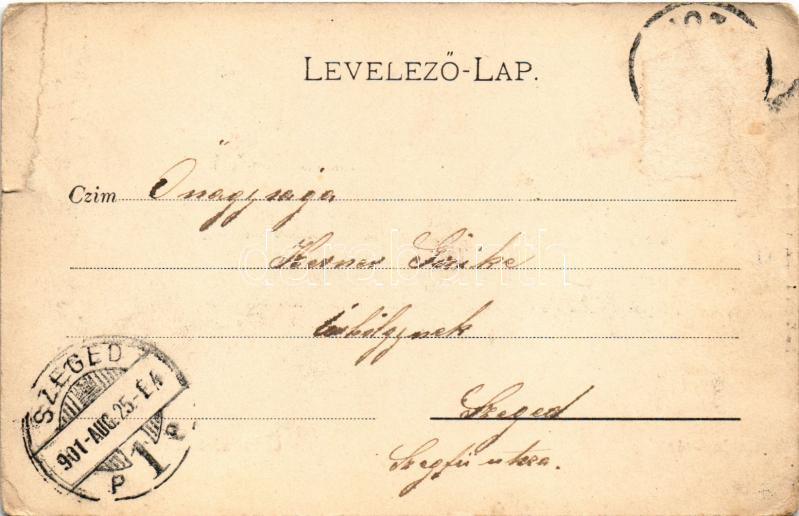 LEVELEZŐ-LAP.
Czim Őnagysága
Kerner Gizike
úrhölgynek
Szeged
Szegfü utcza.
SZEGED
901-AUG.25.-É4
P 1
darabanth